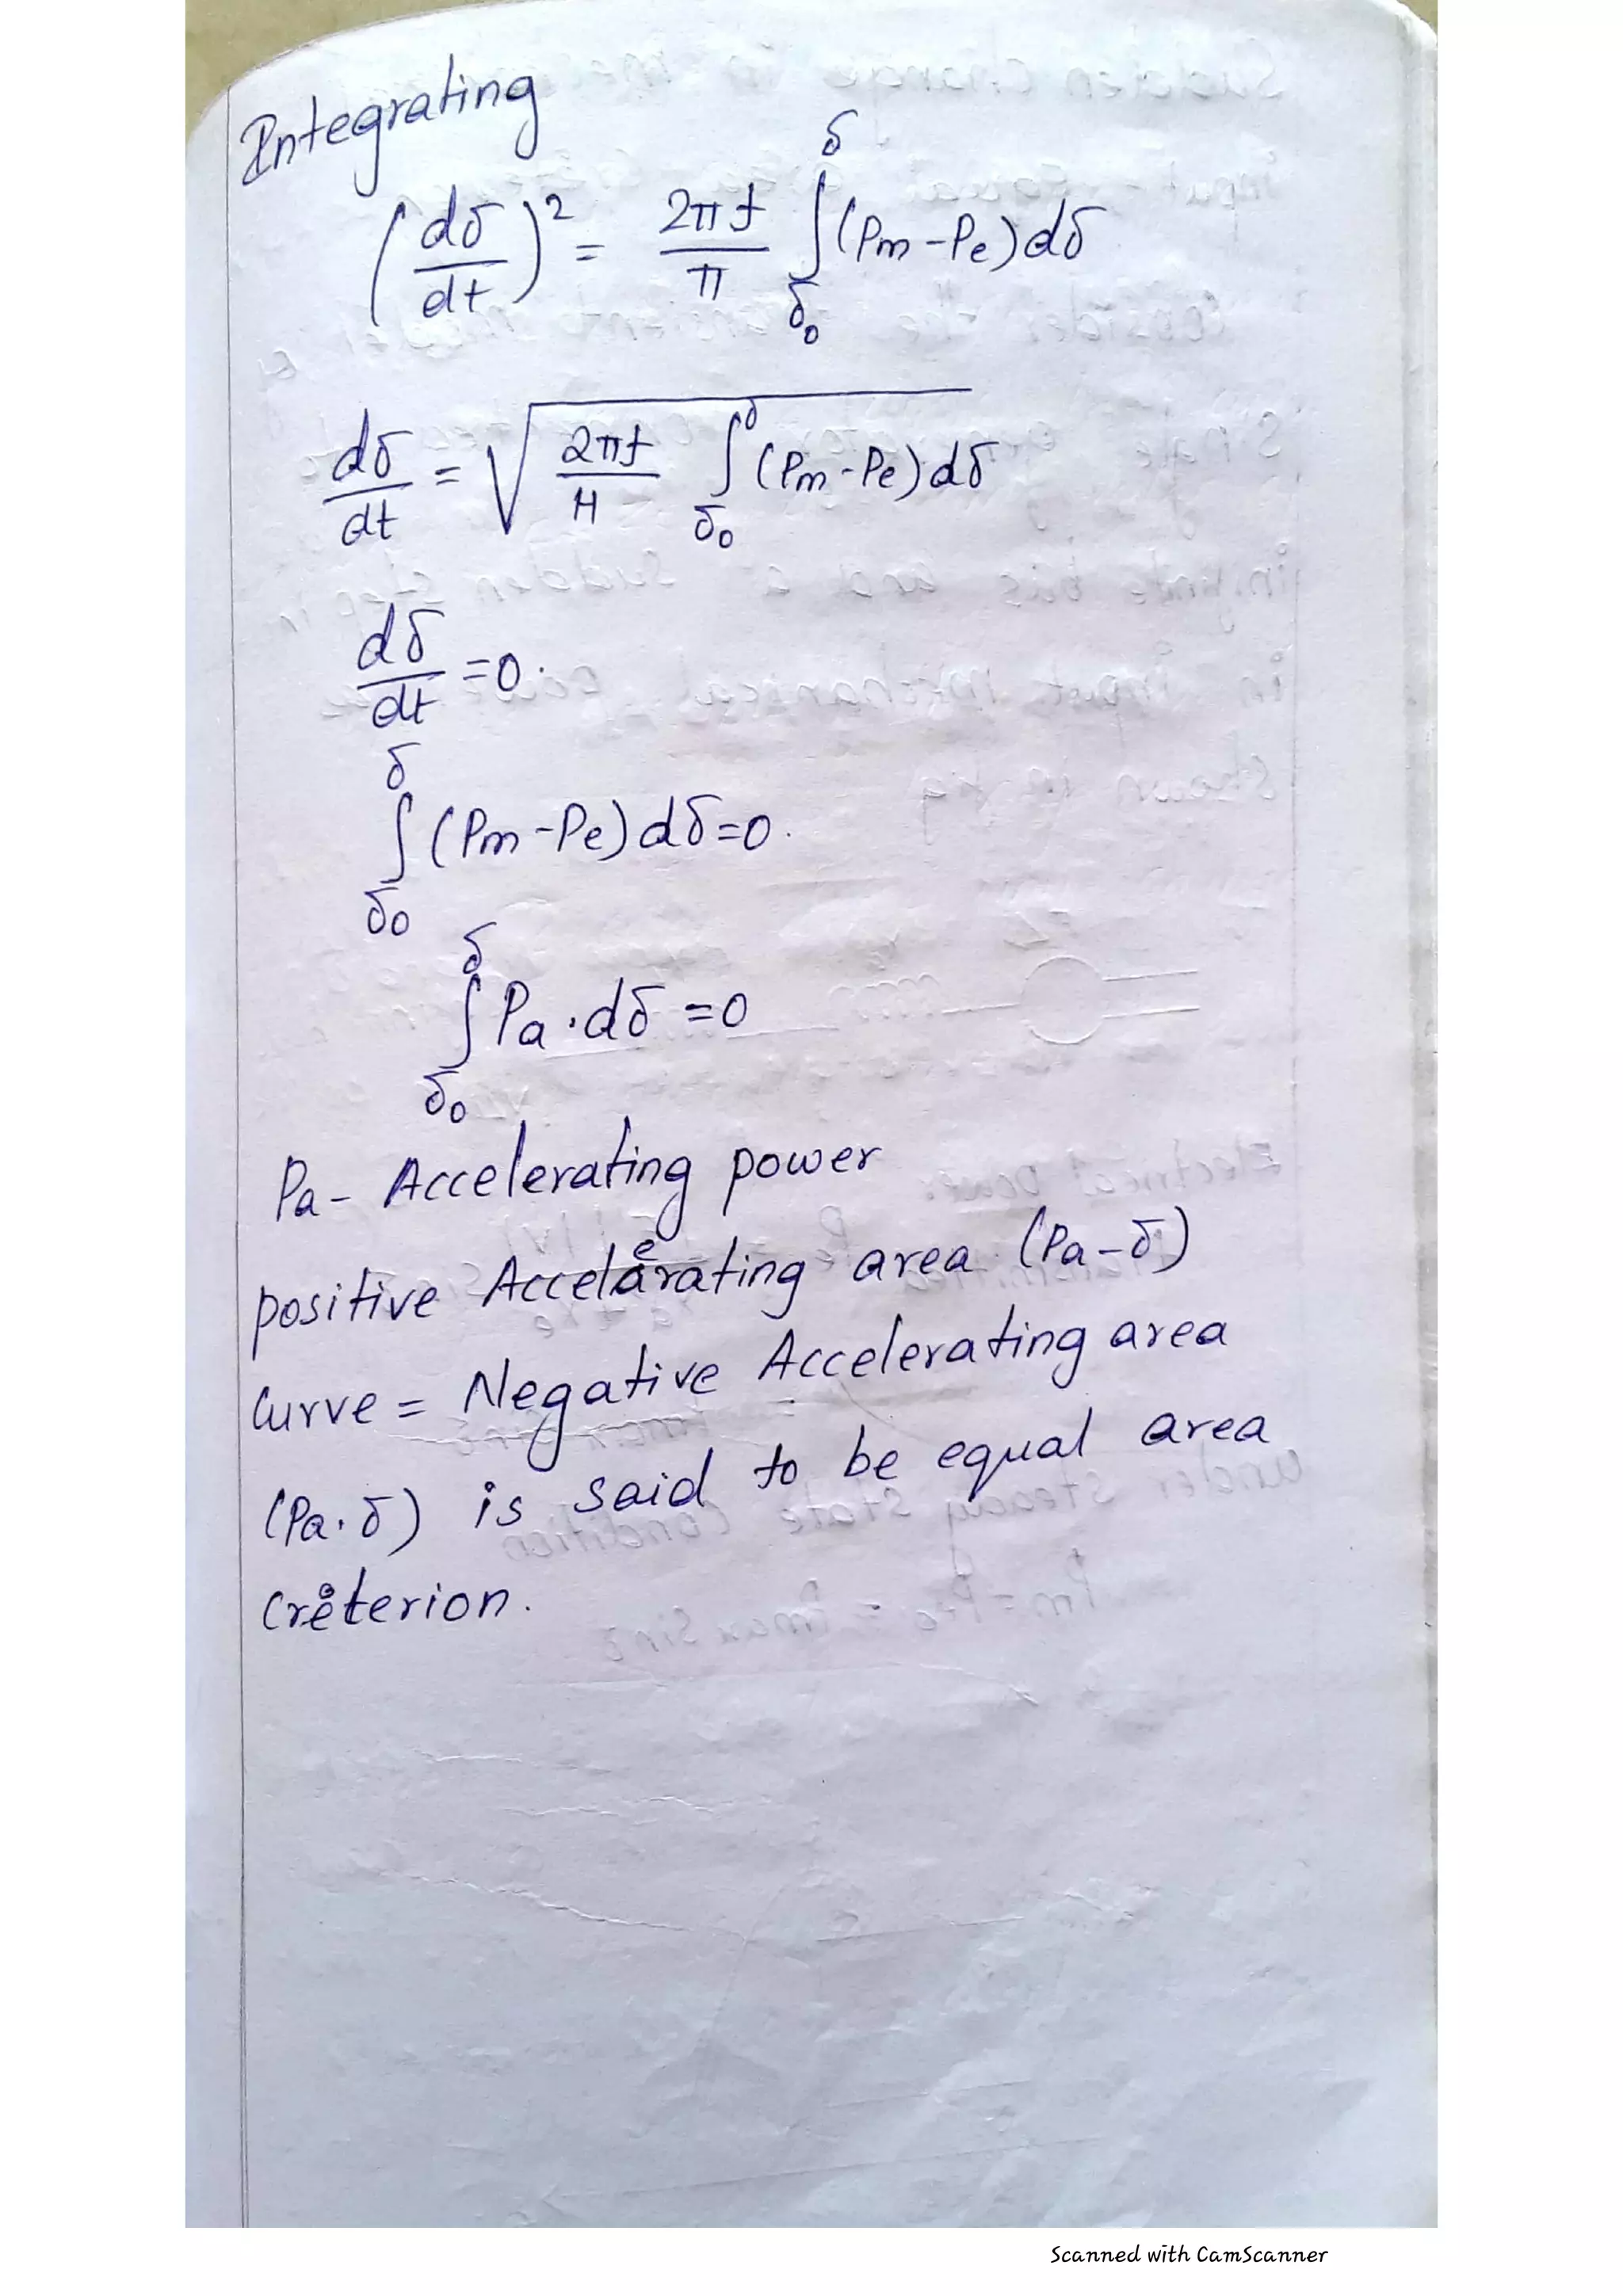 Integrating
(dδ/dt)² = 2πf/π ∫_δ₀^δ (Pm - Pe) dδ
dδ/dt = √(2πf/H ∫_δ₀^δ (Pm - Pe) dδ)
dδ/dt = 0.
∫_δ₀^δ (Pm - Pe) dδ = 0.
∫_δ₀^δ Pa . dδ = 0
Pa - Accelerating power
positive Accelerating area (Pa - δ)
Curve = Negative Accelerating area
(Pa. δ) is said to be equal area
criterion.
Scanned with CamScanner